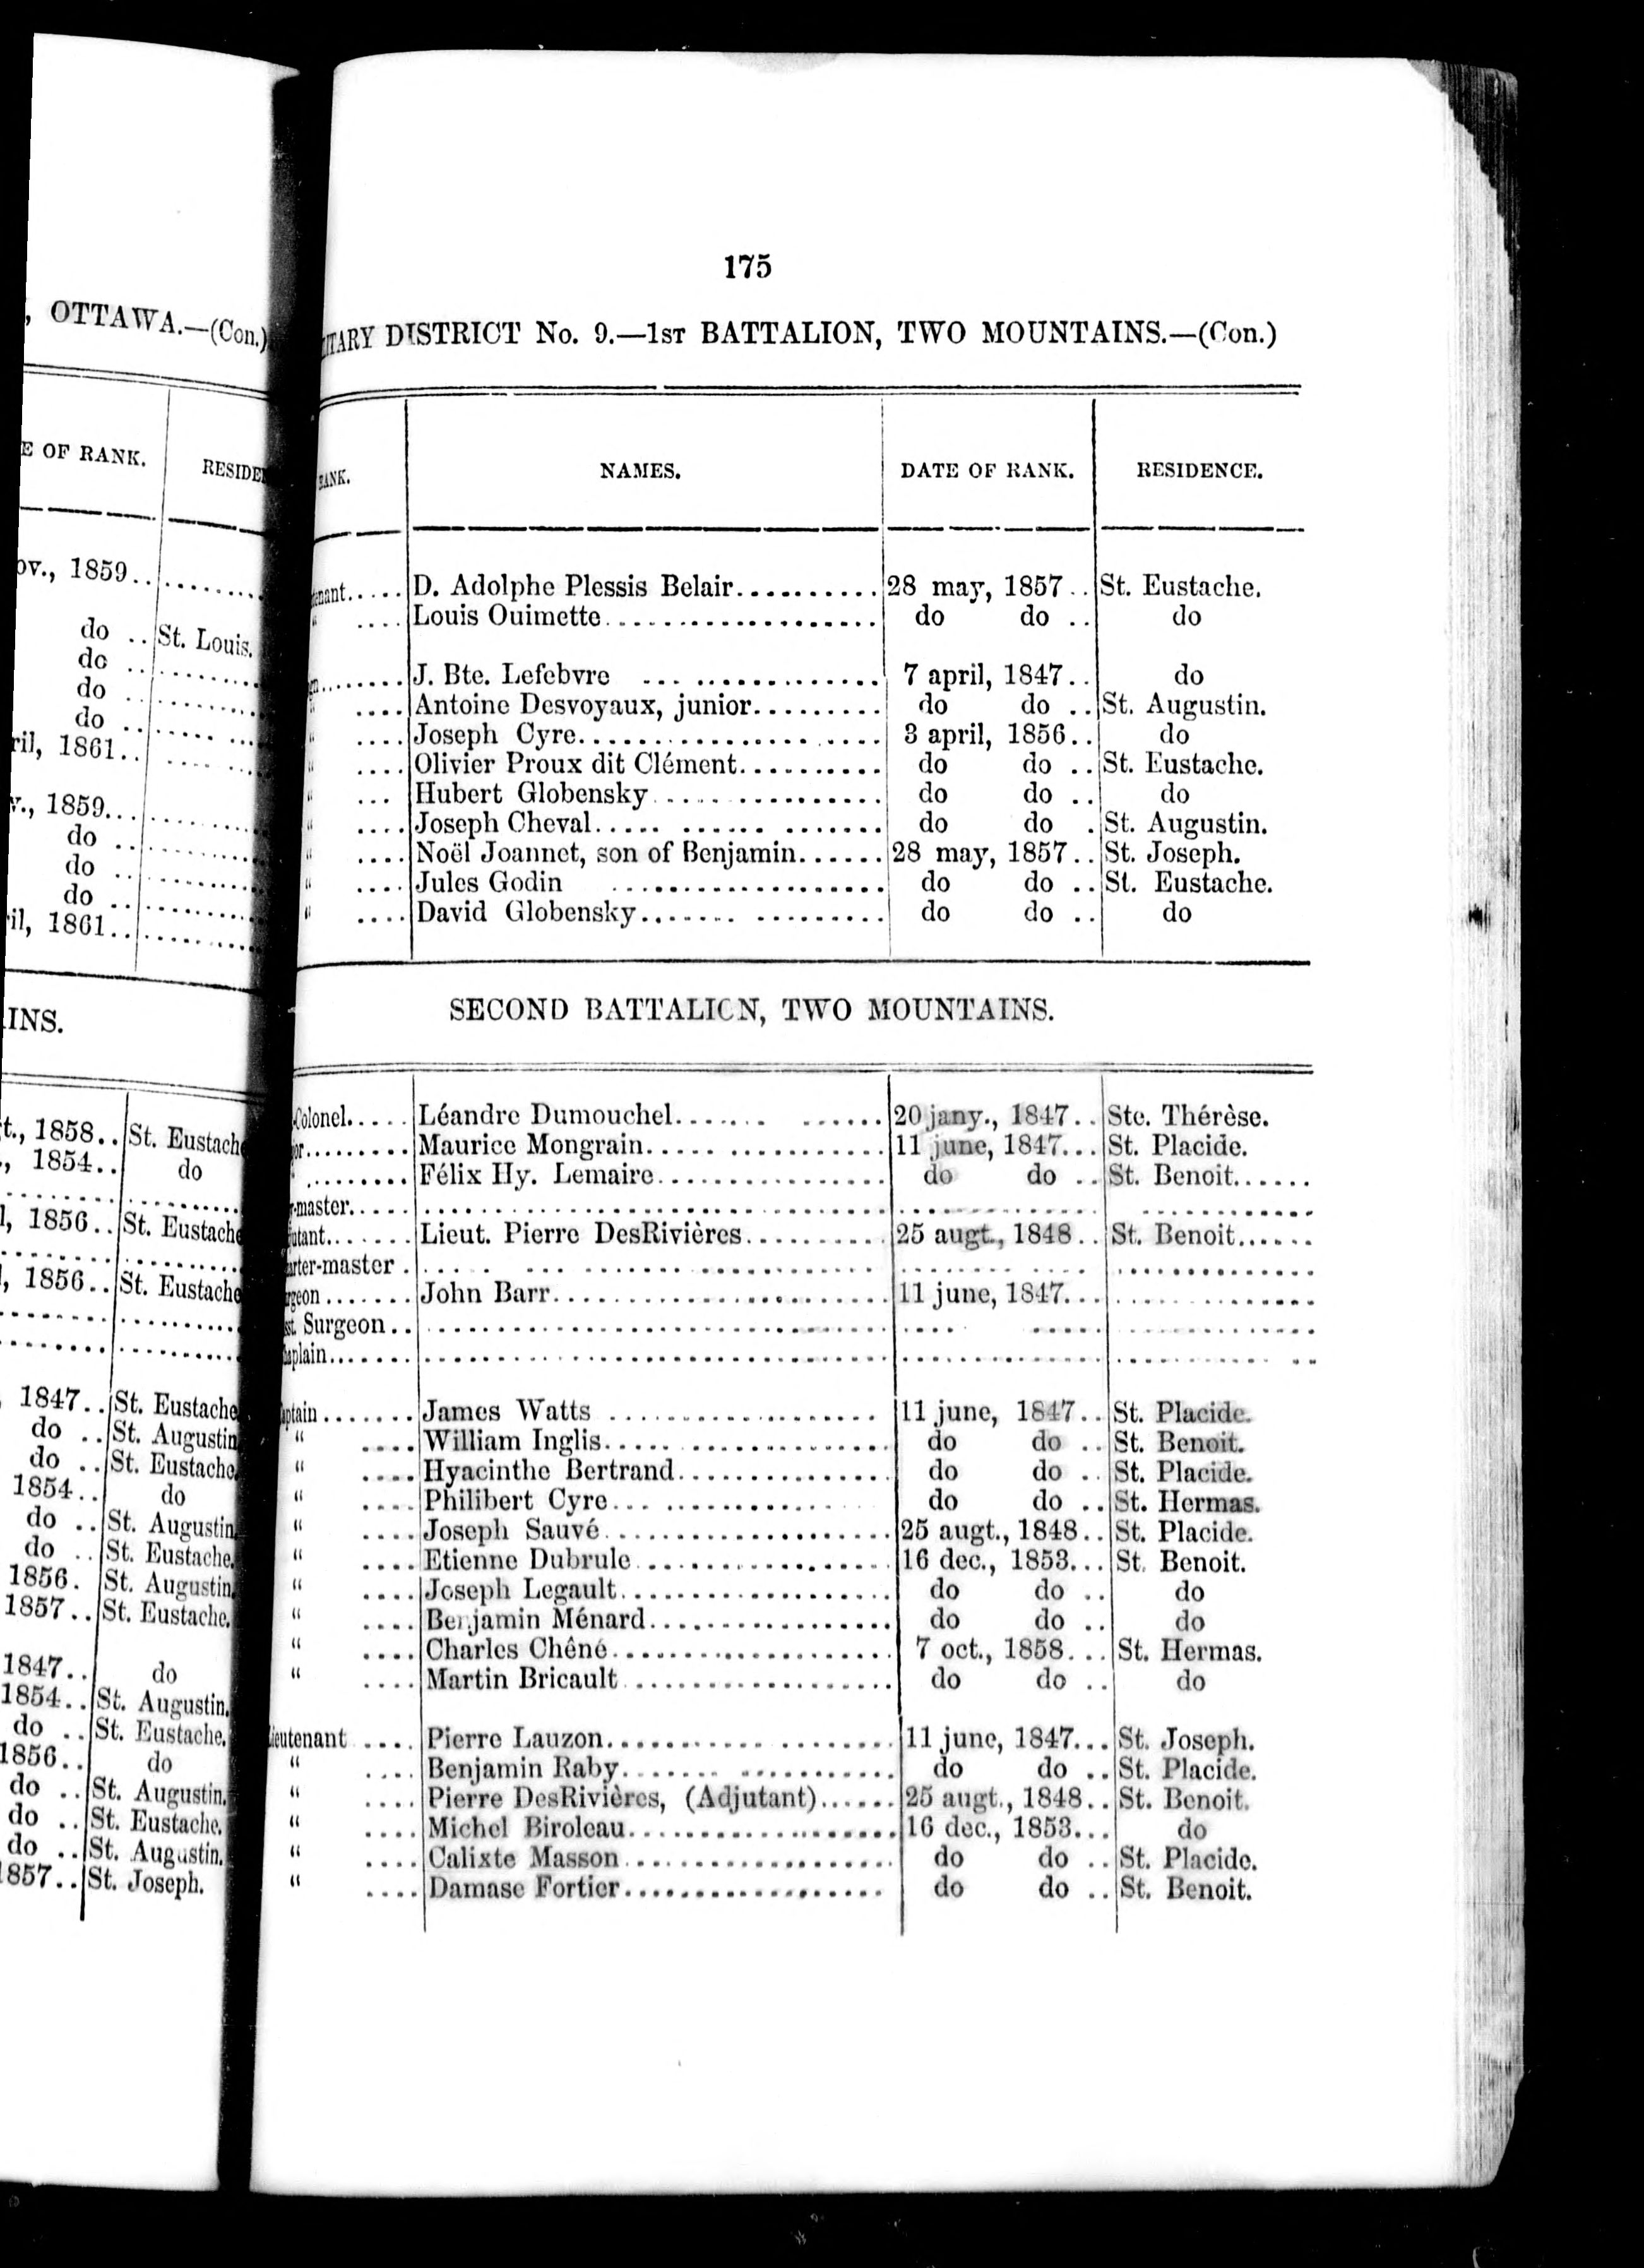 175
, OTTAWA.—(Con.)
E OF RANK. RESIDE
ov., 1859..
do .. St. Louis.
do ..
do ..
do ..
ril, 1861..
v., 1859...
do ..
do ..
do ..
il, 1861..
INS.
t., 1858.. St. Eustache
, 1854.. do
l, 1856.. St. Eustache
, 1856.. St. Eustache
1847.. St. Eustache
do .. St. Augustin
do .. St. Eustache.
1854.. do
do .. St. Augustin
do .. St. Eustache.
1856. St. Augustin.
1857.. St. Eustache.
1847.. do
1854.. St. Augustin.
do .. St. Eustache.
1856.. do
do .. St. Augustin.
do .. St. Eustache.
do .. St. Augustin.
1857.. St. Joseph.
ITARY DISTRICT No. 9.—1ST BATTALION, TWO MOUNTAINS.—(Con.)
RANK. NAMES. DATE OF RANK. RESIDENCE.
tenant..... D. Adolphe Plessis Belair.......... 28 may, 1857.. St. Eustache.
“ .... Louis Ouimette................... do do .. do
gn........ J. Bte. Lefebvre ... ............. 7 april, 1847.. do
“ .... Antoine Desvoyaux, junior......... do do .. St. Augustin.
“ .... Joseph Cyre..................... 3 april, 1856.. do
“ .... Olivier Proux dit Clément.......... do do .. St. Eustache.
“ ... Hubert Globensky................. do do .. do
“ .... Joseph Cheval..... ...... ....... do do . St. Augustin.
“ .... Noël Joannet, son of Benjamin...... 28 may, 1857.. St. Joseph.
“ .... Jules Godin ................... do do .. St. Eustache.
“ .... David Globensky....... ......... do do .. do
SECOND BATTALION, TWO MOUNTAINS.
-Colonel..... Léandre Dumouchel....... ...... 20 jany., 1847.. Ste. Thérèse.
or......... Maurice Mongrain................. 11 june, 1847... St. Placide.
......... Félix Hy. Lemaire................ do do .. St. Benoit......
-master.....
utant....... Lieut. Pierre DesRivières.......... 25 augt., 1848.. St. Benoit......
arter-master .
rgeon....... John Barr........................ 11 june, 1847...
sst. Surgeon..
haplain.......
aptain....... James Watts ................... 11 june, 1847.. St. Placide.
“ .... William Inglis.................... do do .. St. Benoit.
“ .... Hyacinthe Bertrand............... do do .. St. Placide.
“ .... Philibert Cyre... ............... do do .. St. Hermas.
“ .... Joseph Sauvé.................... 25 augt., 1848.. St. Placide.
“ .... Etienne Dubrule.................. 16 dec., 1853... St. Benoit.
“ .... Joseph Legault................... do do .. do
“ .... Benjamin Ménard................. do do .. do
“ .... Charles Chêné.................... 7 oct., 1858... St. Hermas.
“ .... Martin Bricault................... do do .. do
ieutenant .... Pierre Lauzon.................... 11 june, 1847... St. Joseph.
“ .... Benjamin Raby....... ........... do do .. St. Placide.
“ .... Pierre DesRivières, (Adjutant)...... 25 augt., 1848.. St. Benoit.
“ .... Michel Biroleau................... 16 dec., 1853... do
“ .... Calixte Masson................... do do .. St. Placide.
“ .... Damase Fortier.................. do do .. St. Benoit.